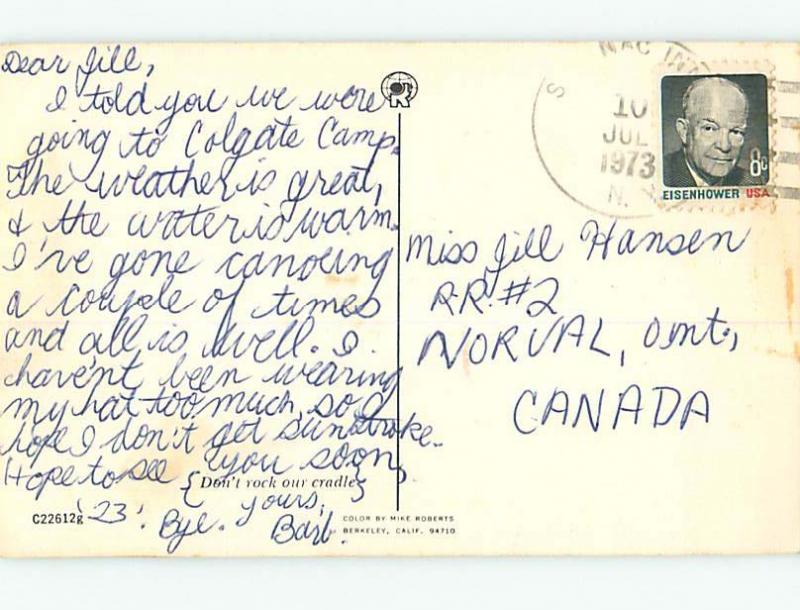 Dear Jill,
I told you we were
going to Colgate Camp.
The weather is great,
& the water is warm.
I've gone canoeing
a couple of times
and all is well. I
haven't been wearing
my hat too much, so I
hope I don't get sunstroke.
Hope to see you soon,
{Don't rock our cradle}
Yours,
C22612g
'23'.
Bye.
Barb.
COLOR BY MIKE ROBERTS
BERKELEY, CALIF. 94710
R
10
JUL
1973
N.
8c
EISENHOWER USA
Miss Jill Hansen
R.R. #2
NORVAL, Ont.,
CANADA